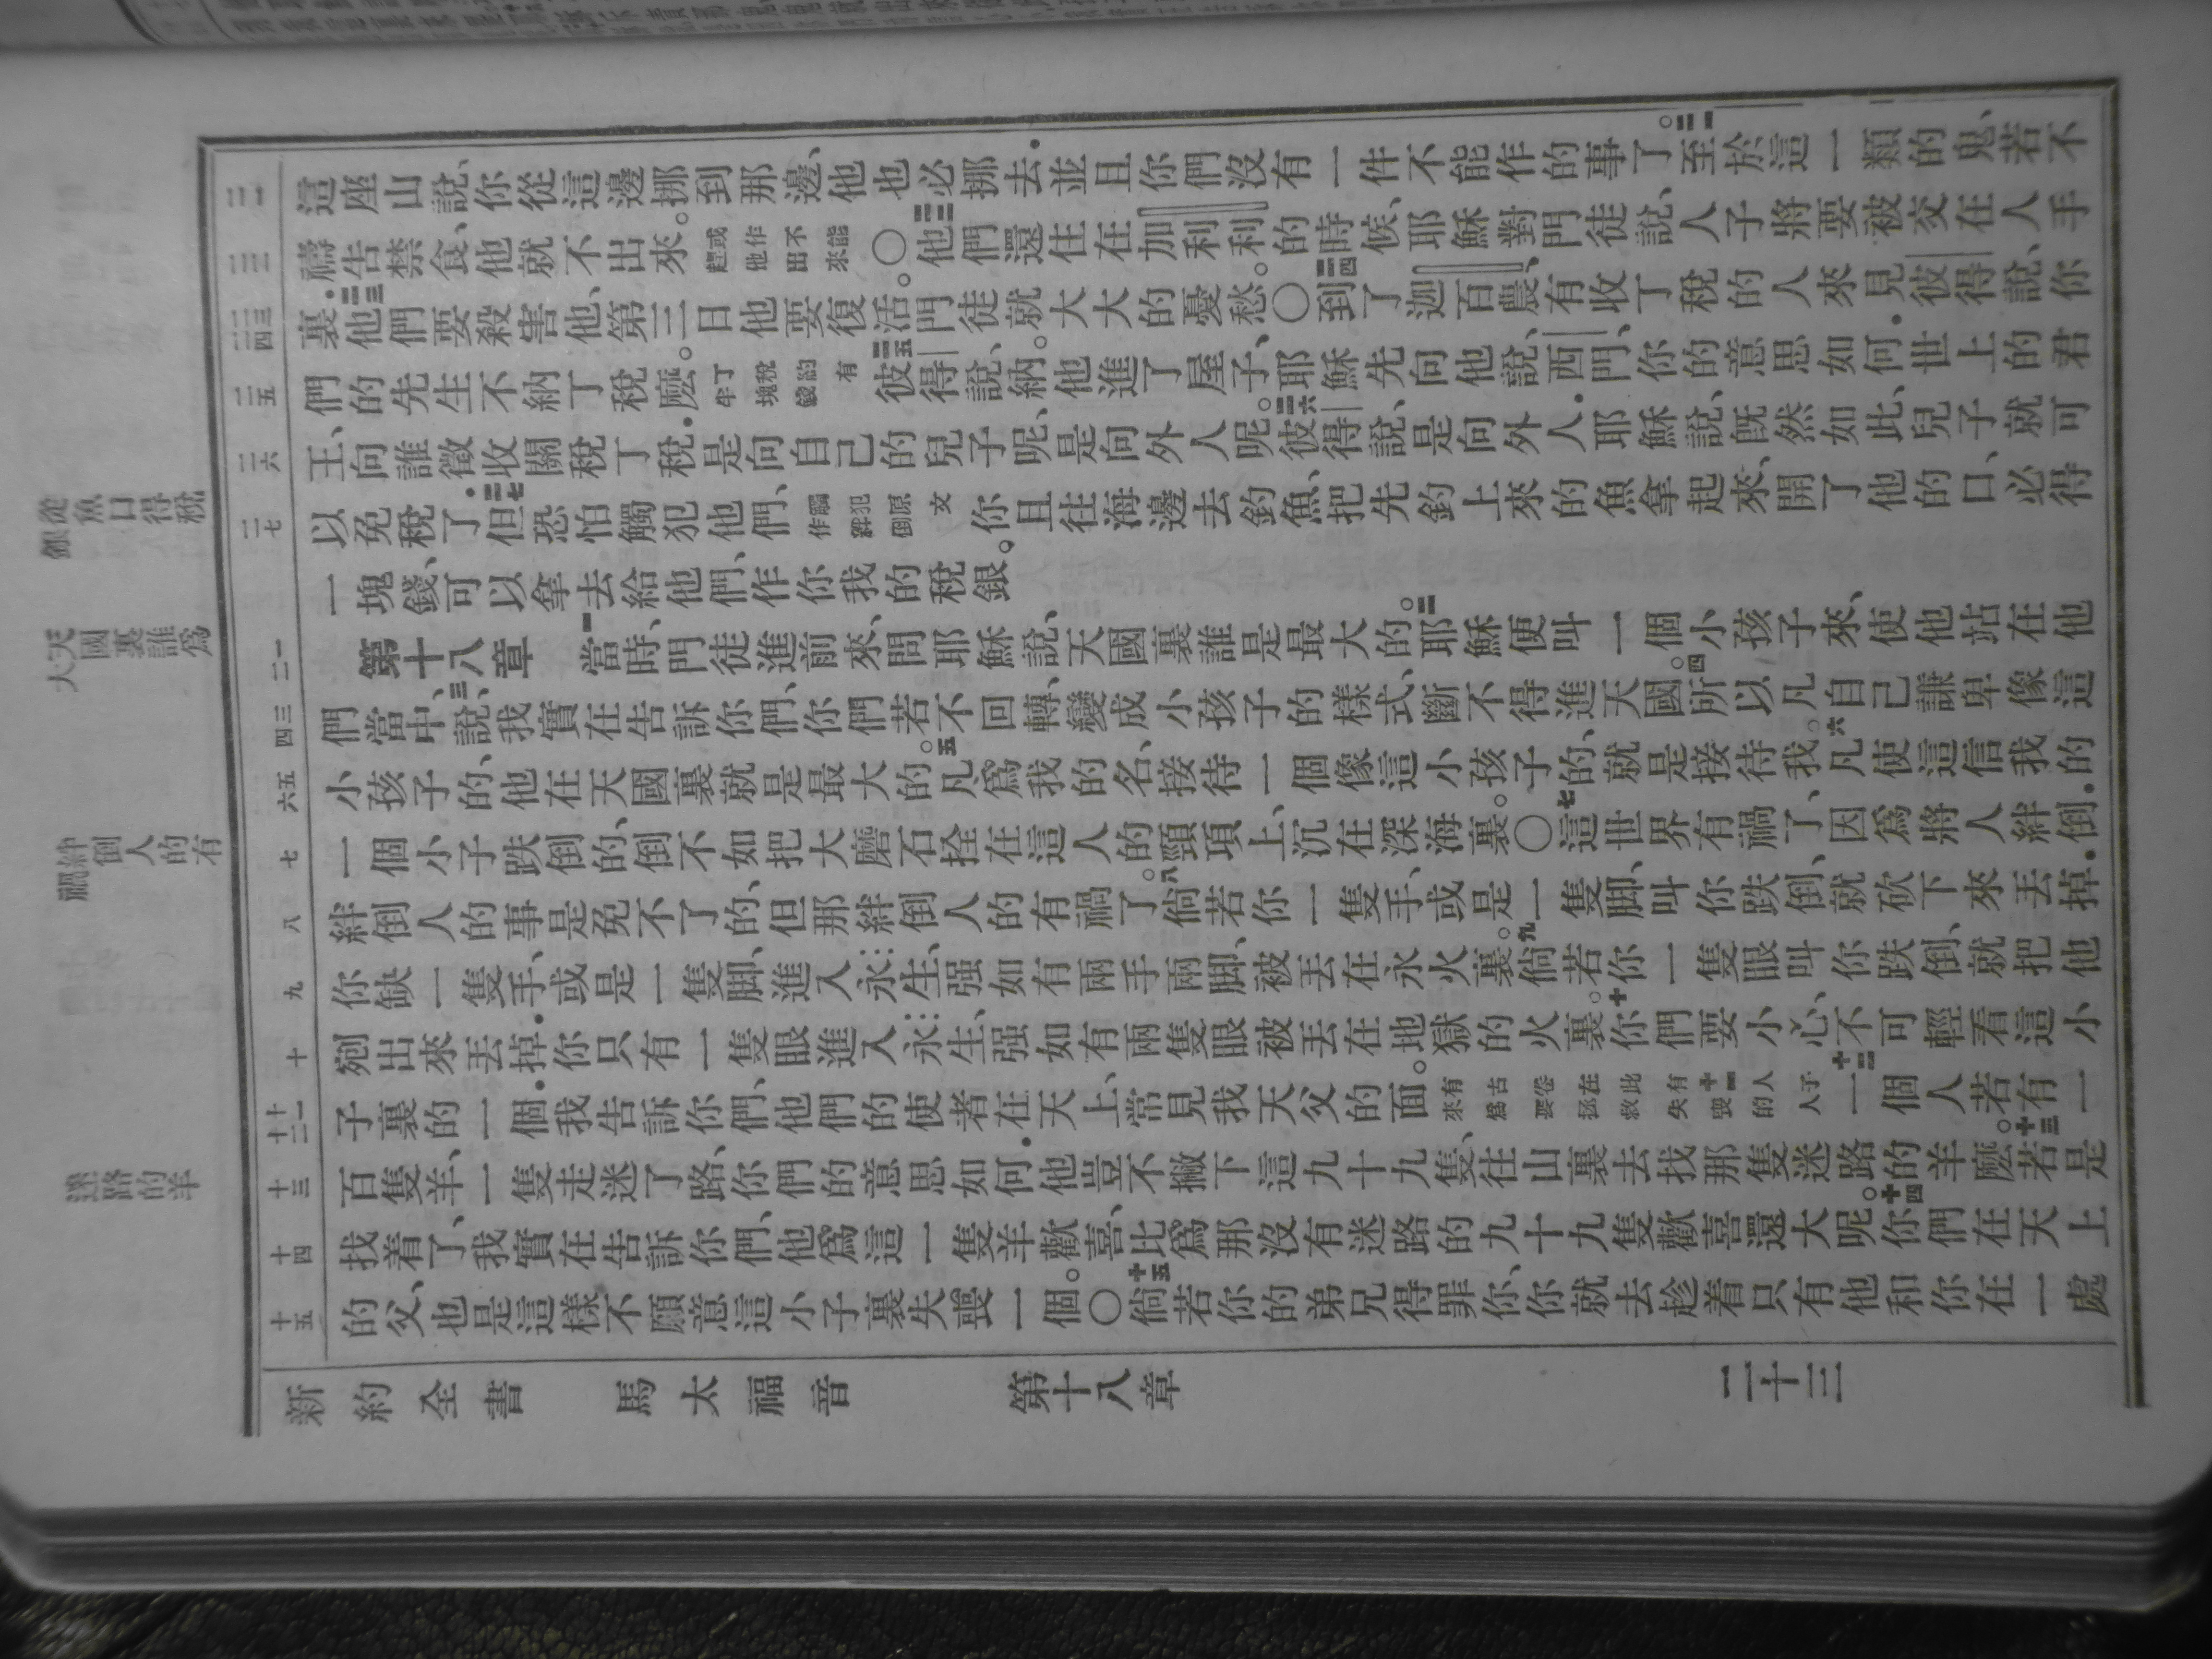 從魚口得稅
銀
天國裏誰爲
大
絆倒人的有
禍
迷路的羊
二一
二二
二三 二四
二五
二六
二七
一 二
三 四
五 六
七
八
九
十
十一 十二
十三
十四
十五
這座山說、你從這邊挪到那邊、他也必挪去．並且你們沒有一件不能作的事了。二一至於這一類的鬼、若不
禱告禁食、他就不出來。或作不能趕他出來○二二他們還住在加利利的時候、耶穌對門徒說、人子將要被交在人手
裏．二三他們要殺害他、第三日他要復活。門徒就大大的憂愁。○二四到了迦百農、有收丁稅的人來見彼得說、你
們的先生不納丁稅麼。丁稅約有半塊錢二五彼得說、納。他進了屋子、耶穌先向他說、西門、你的意思如何．世上的君
王、向誰徵收關稅丁稅．是向自己的兒子呢、是向外人呢。二六彼得說、是向外人．耶穌說、既然如此、兒子就可
以免稅了．二七但恐怕觸犯他們、觸犯原文作絆倒你且往海邊去釣魚、把先釣上來的魚拿起來、開了他的口、必得
一塊錢、可以拿去給他們、作你我的稅銀。
第十八章 一當時、門徒進前來、問耶穌說、天國裏誰是最大的。二耶穌便叫一個小孩子來、使他站在他
們當中、三說、我實在告訴你們、你們若不回轉、變成小孩子的樣式、斷不得進天國。四所以凡自己謙卑像這
小孩子的、他在天國裏就是最大的。五凡爲我的名、接待一個像這小孩子的、就是接待我。六凡使這信我的
一個小子跌倒的、倒不如把大磨石拴在這人的頸項上、沉在深海裏。○七這世界有禍了、因爲將人絆倒．
絆倒人的事是免不了的、但那絆倒人的有禍了。八倘若你一隻手、或是一隻脚、叫你跌倒、就砍下來丟掉．
你缺一隻手、或是一隻脚、進入永生、强如有兩手兩脚、被丟在永火裏。九倘若你一隻眼叫你跌倒、就把他
剜出來丟掉．你只有一隻眼進入永生、强如有兩隻眼被丟在地獄的火裏。十你們要小心、不可輕看這小
子裏的一個．我吿訴你們、他們的使者在天上、常見我天父的面。有古卷在此有十一人子來爲要拯救失喪的人十二一個人若有一
百隻羊、一隻走迷了路、你們的意思如何．他豈不撇下這九十九隻、往山裏去找那隻迷路的羊麼。十三若是
找着了、我實在告訴你們、他爲這一隻羊歡喜、比爲那沒有迷路的九十九隻歡喜還大呢。十四你們在天上
的父、也是這樣不願意這小子裏失喪一個。○十五倘若你的弟兄得罪你、你就去趁着只有他和你在一處
新約全書 馬太福音 第十八章 二十三